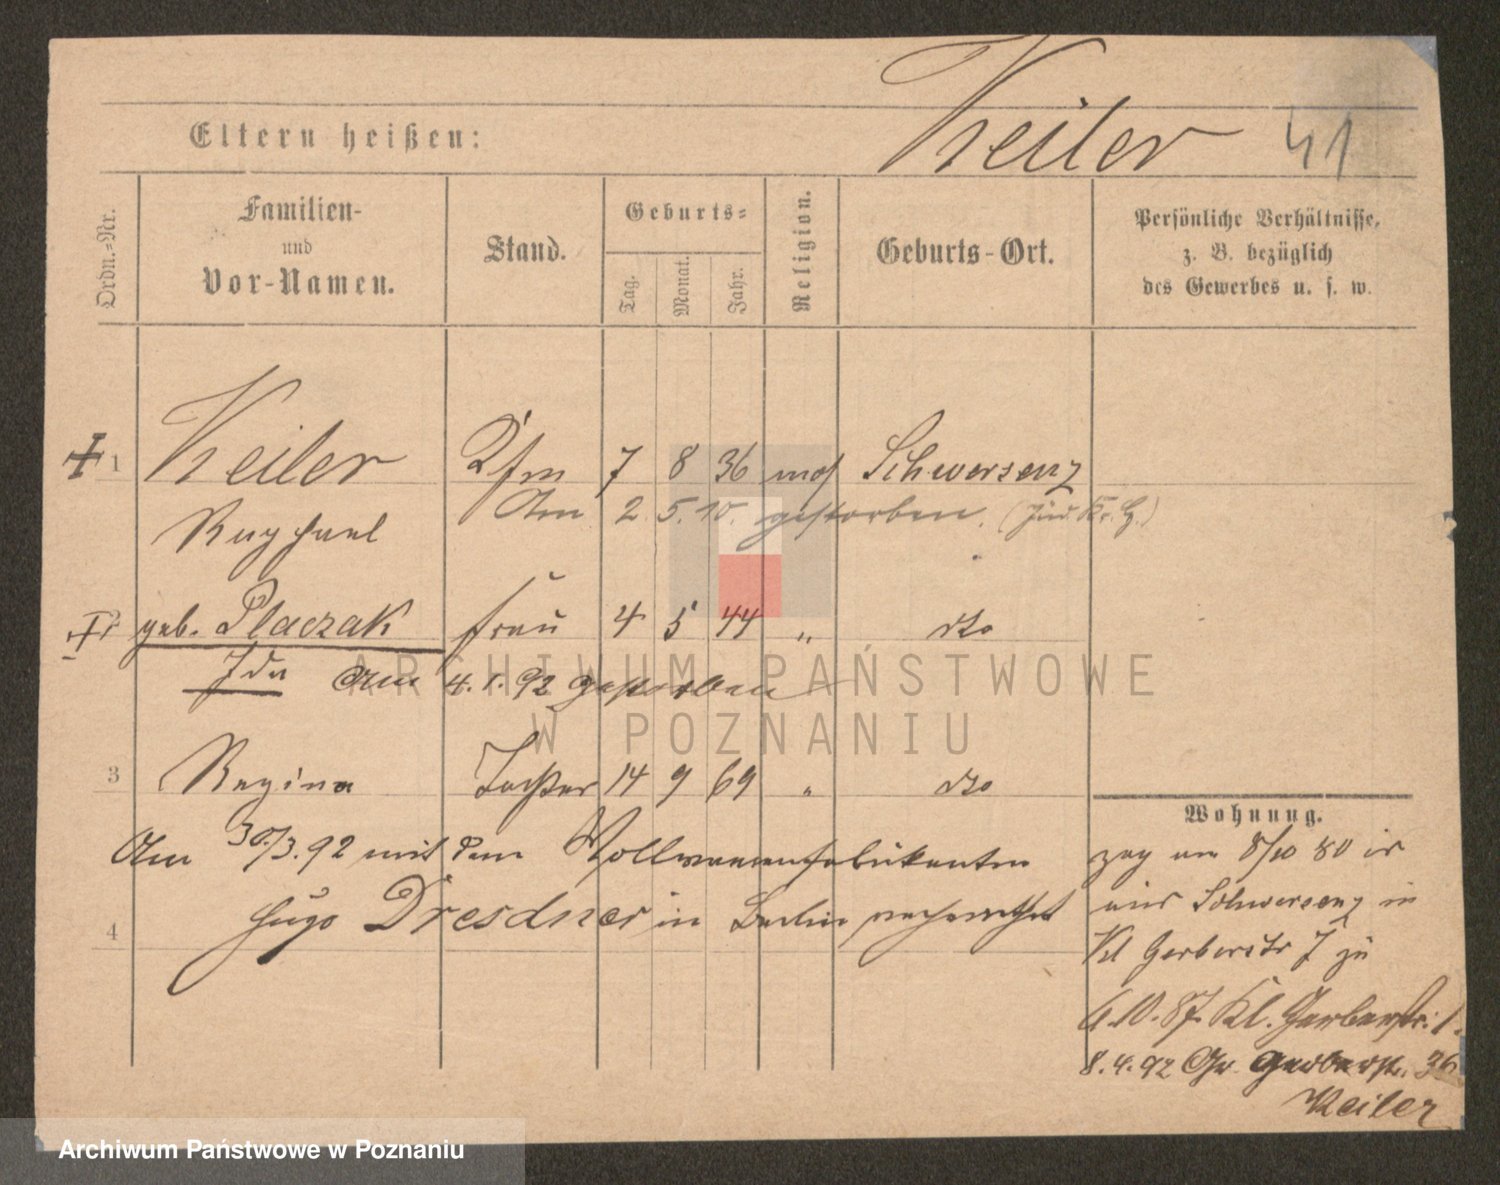 Keiler 41
Eltern heißen:
Ordn.-Nr.
Familien-
und
Vor-Namen.
Stand.
Geburts-
Tag.
Monat.
Jahr.
Religion.
Geburts-Ort.
Persönliche Verhältnisse,
z. B. bezüglich
des Gewerbes u. s. w.
1 Keiler Kfm 7 8 36 mos Schwersenz
Raphael Am 2. 5. 10. gestorben.
2 geb. Placzak Frau 4 5 44 " dto
Ida Am 4.1.92 gestorben
3 Regina Tochter 14 9 69 " dto
Am 30/3.92 mit dem Wollwaarenfabrikanten
4 Hugo Dresdner in Berlin verheirathet
Wohnung.
zog am 8/10 80
aus Schwersenz in
Kl Gerberstr 7 zu
6.10.87 Kl. Gerberstr. 1.
8.4.92 Gr. Gerberstr. 36
Keiler
ARCHIWUM PAŃSTWOWE
W POZNANIU
Archiwum Państwowe w Poznaniu